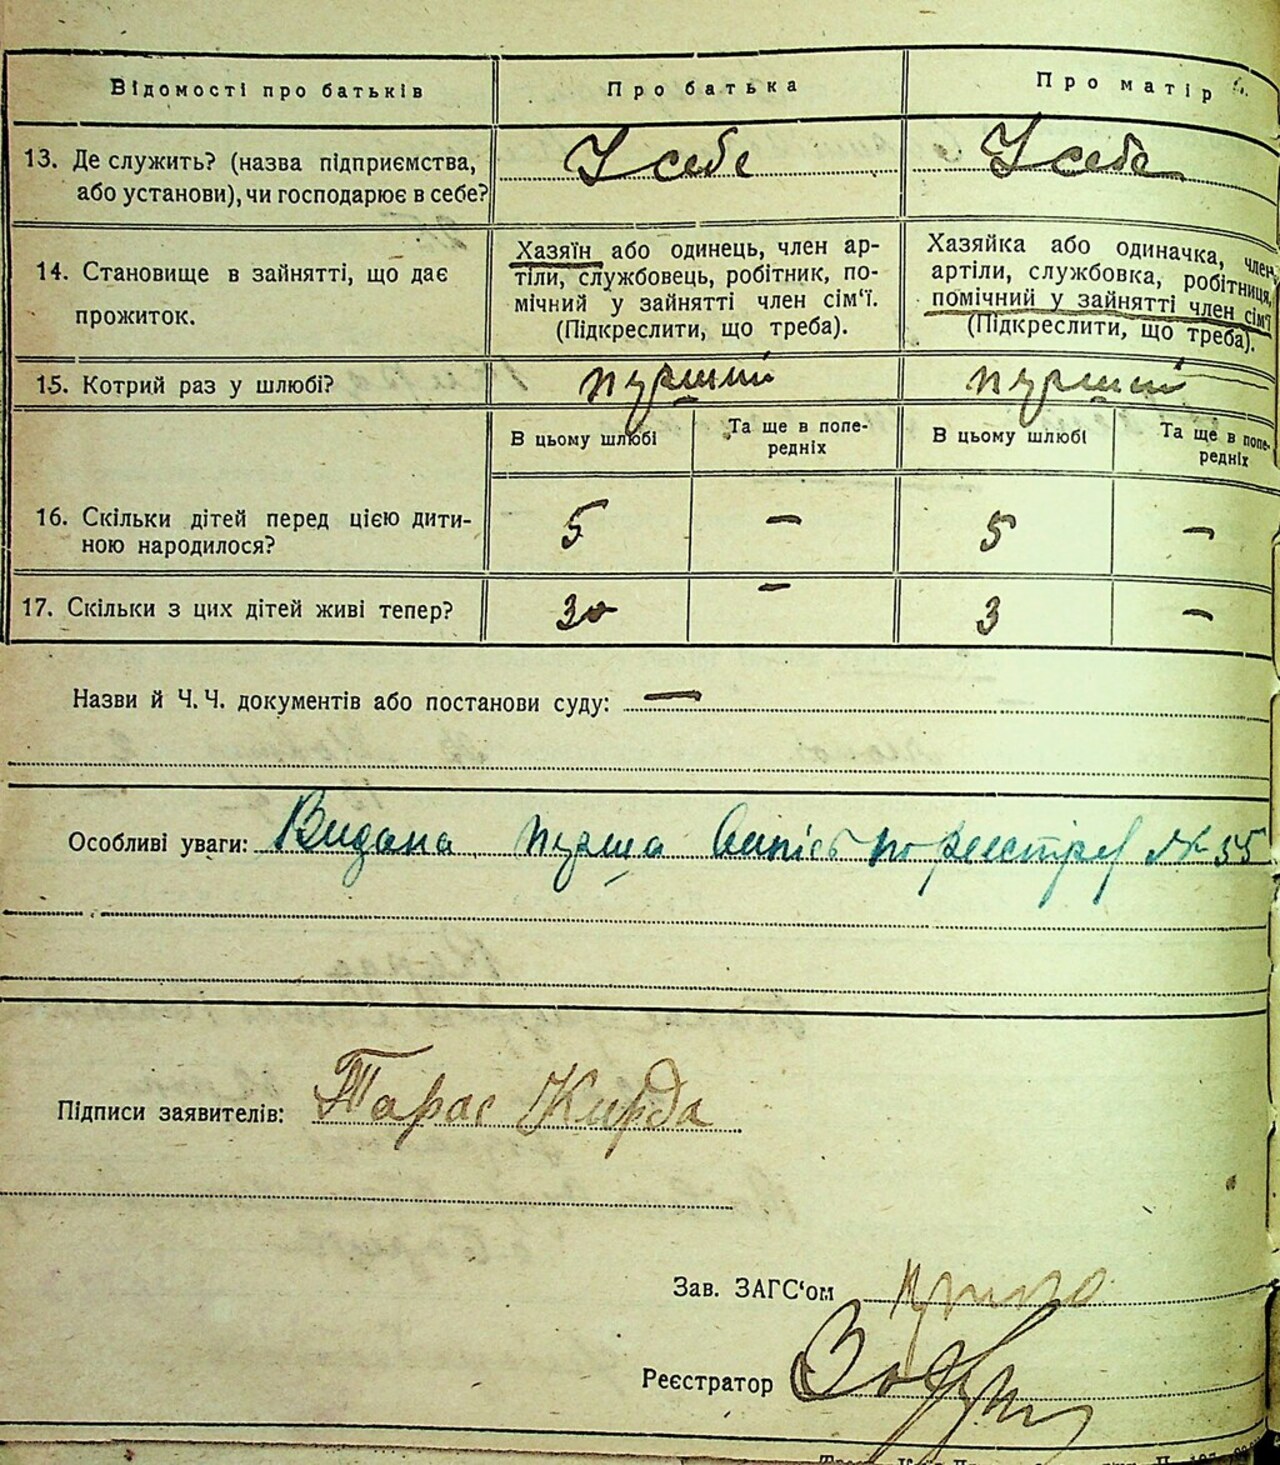 Відомості про батьків Про батька Про матір
13. Де служить? (назва підприємства, або установи), чи господарює в себе? У себе У себе
14. Становище в зайнятті, що дає прожиток.
Хазяїн або одинець, член ар-
тіли, службовець, робітник, по-
мічний у зайнятті член сім'ї.
(Підкреслити, що треба).
Хазяйка або одиначка, член
артіли, службовка, робітниця,
помічний у зайнятті член сім'ї
(Підкреслити, що треба).
15. Котрий раз у шлюбі? перший перший
В цьому шлюбі Та ще в попе-
редніх В цьому шлюбі Та ще в попе-
редніх
16. Скільки дітей перед цією дити-
ною народилося? 5 — 5 —
17. Скільки з цих дітей живі тепер? 3 — 3 —
Назви й Ч.Ч. документів або постанови суду: —
Особливі уваги: Видана перша випись по реєстру № 55
Підписи заявителів: Тарас Кирда
Зав. ЗАГС'ом
Реєстратор